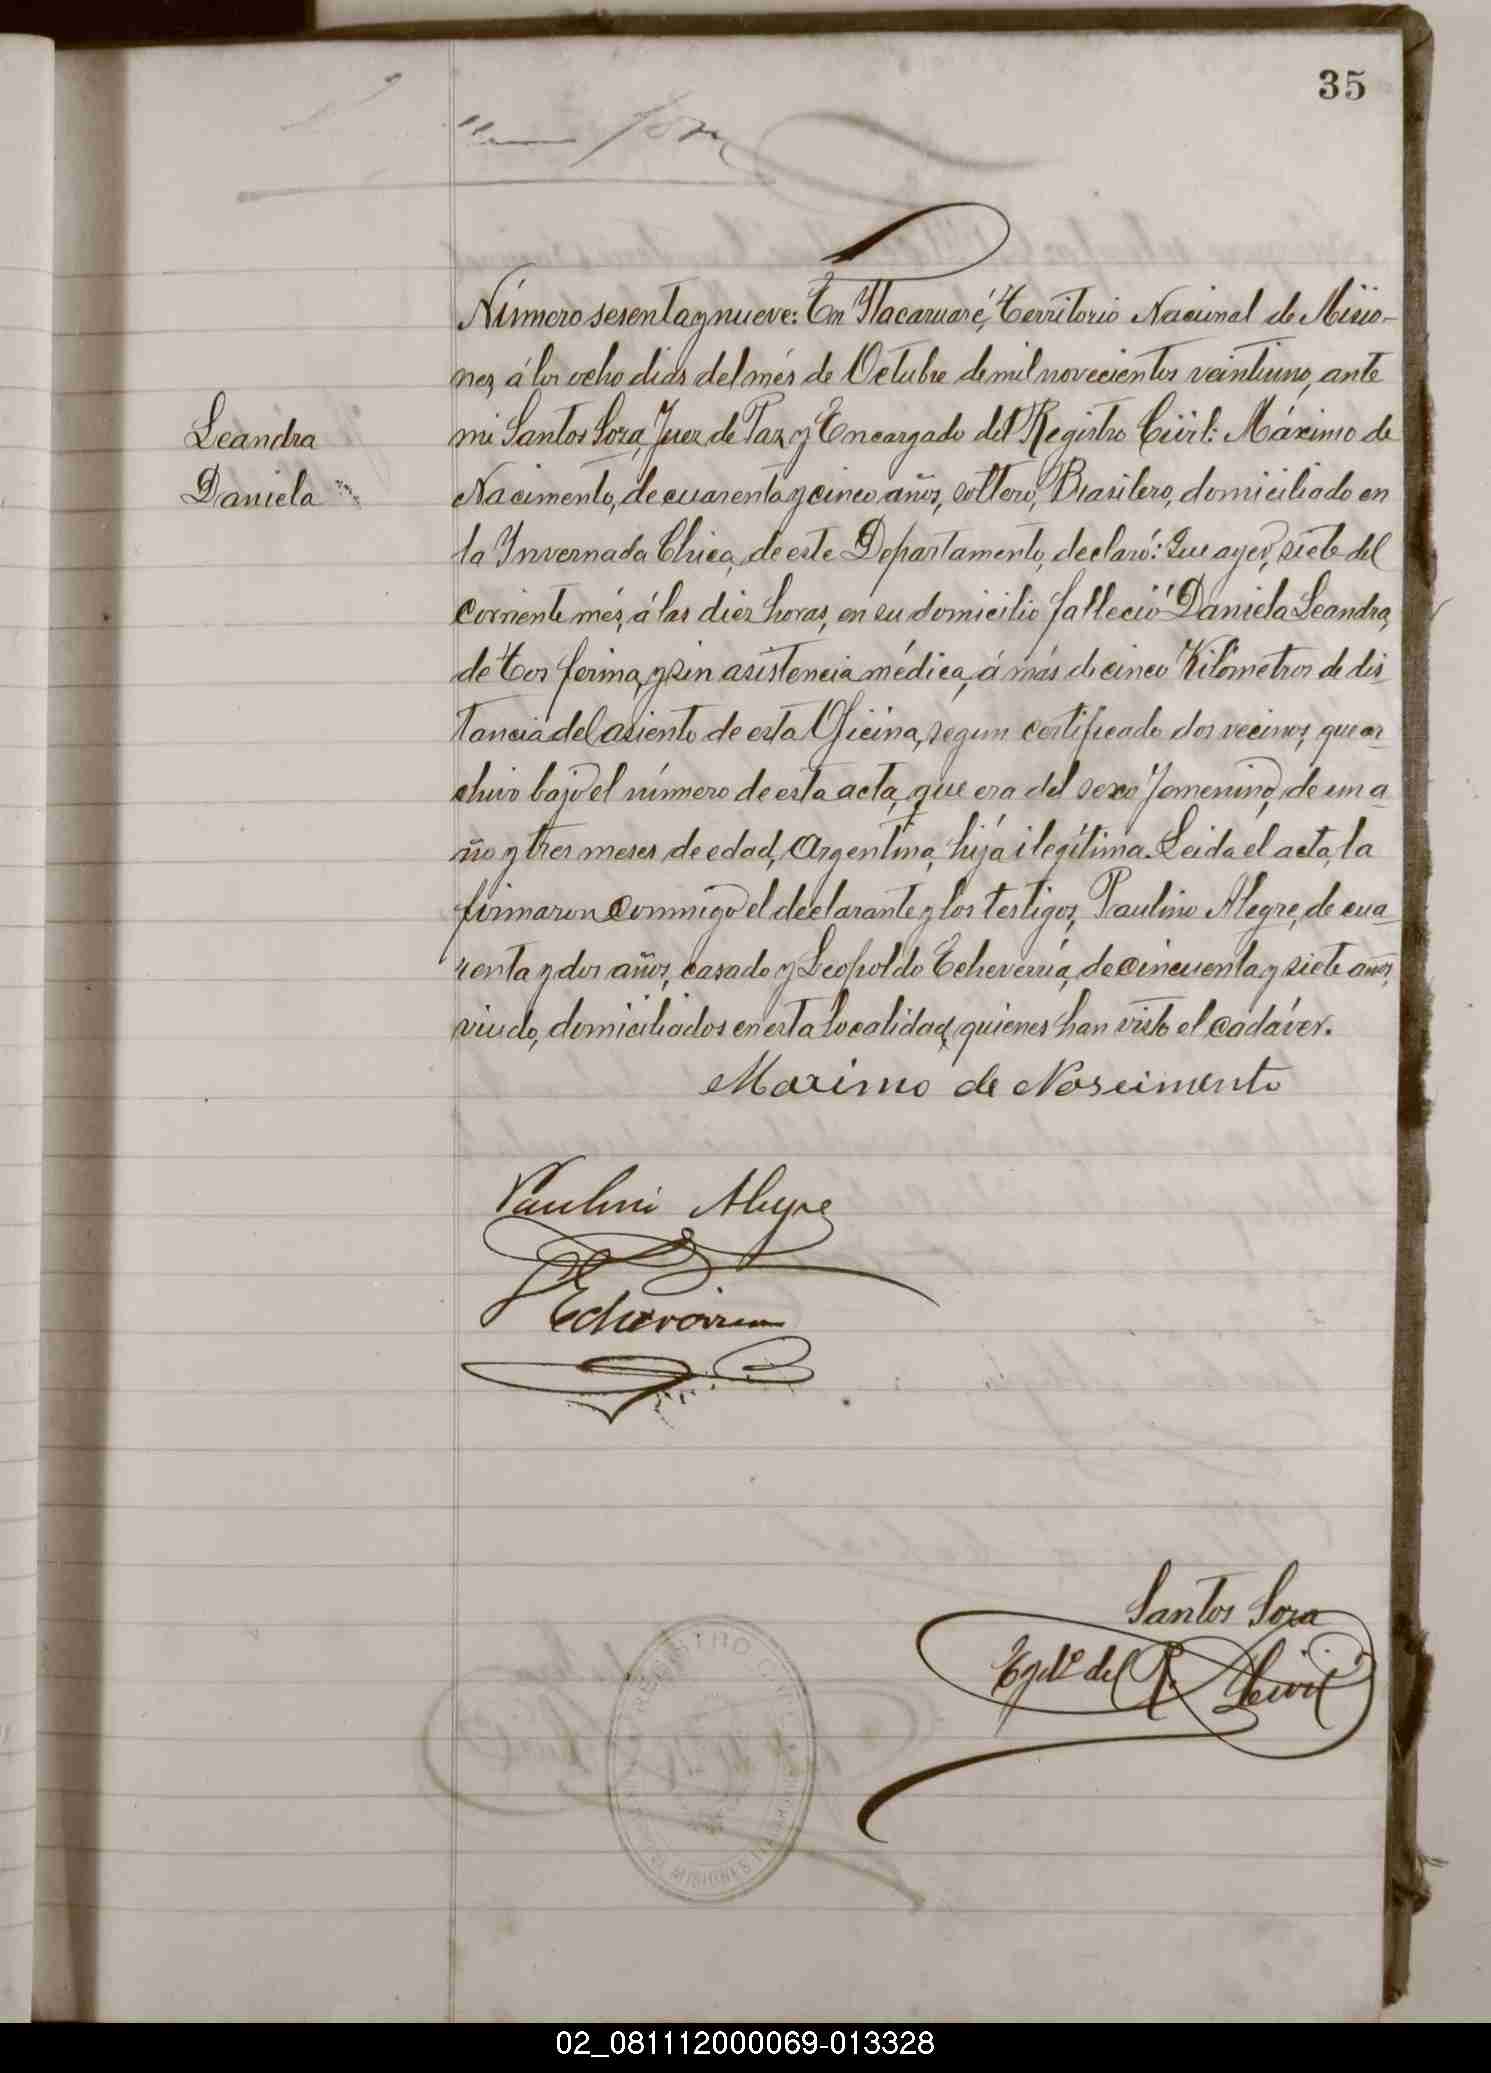 35
Número sesenta y nueve: En Itacaruaré, Territorio Nacional de Misio-
nes, á los ocho dias del més de Octubre de mil novecientos veintiuno, ante
Leandra
Daniela
mi Santos Soza, Juez de Paz y Encargado del Registro Civil: Máximo de
Nacimento, de cuarenta y cinco años, soltero, Brasilero, domiciliado en
la Invernada Chica, de este Departamento, declaró: Que ayer, siete del
corriente més, á las diez horas, en su domicilio falleció Daniela Leandra,
de tos ferina, y sin asistencia médica, á más de cinco Kilómetros de dis-
tancia del asiento de esta Oficina, segun certificado dos vecinos, que ar-
chivo bajo el número de esta acta, que era del sexo femenino, de un a-
ño y tres meses de edad, Argentina, hija ilegítima. Leida el acta, la
firmaron conmigo el declarante y los testigos, Paulino Alegre, de cua-
renta y dos años, casado y Leopoldo Echeverría, de cincuenta y siete años,
viudo, domiciliados en esta localidad, quienes han visto el cadáver.
Maximo de Nascimento
Paulino Alegre
Echeverria
Santos Soza
Egdo del R. Civil
REGISTRO CIVIL
MISIONES
02_081112000069-013328